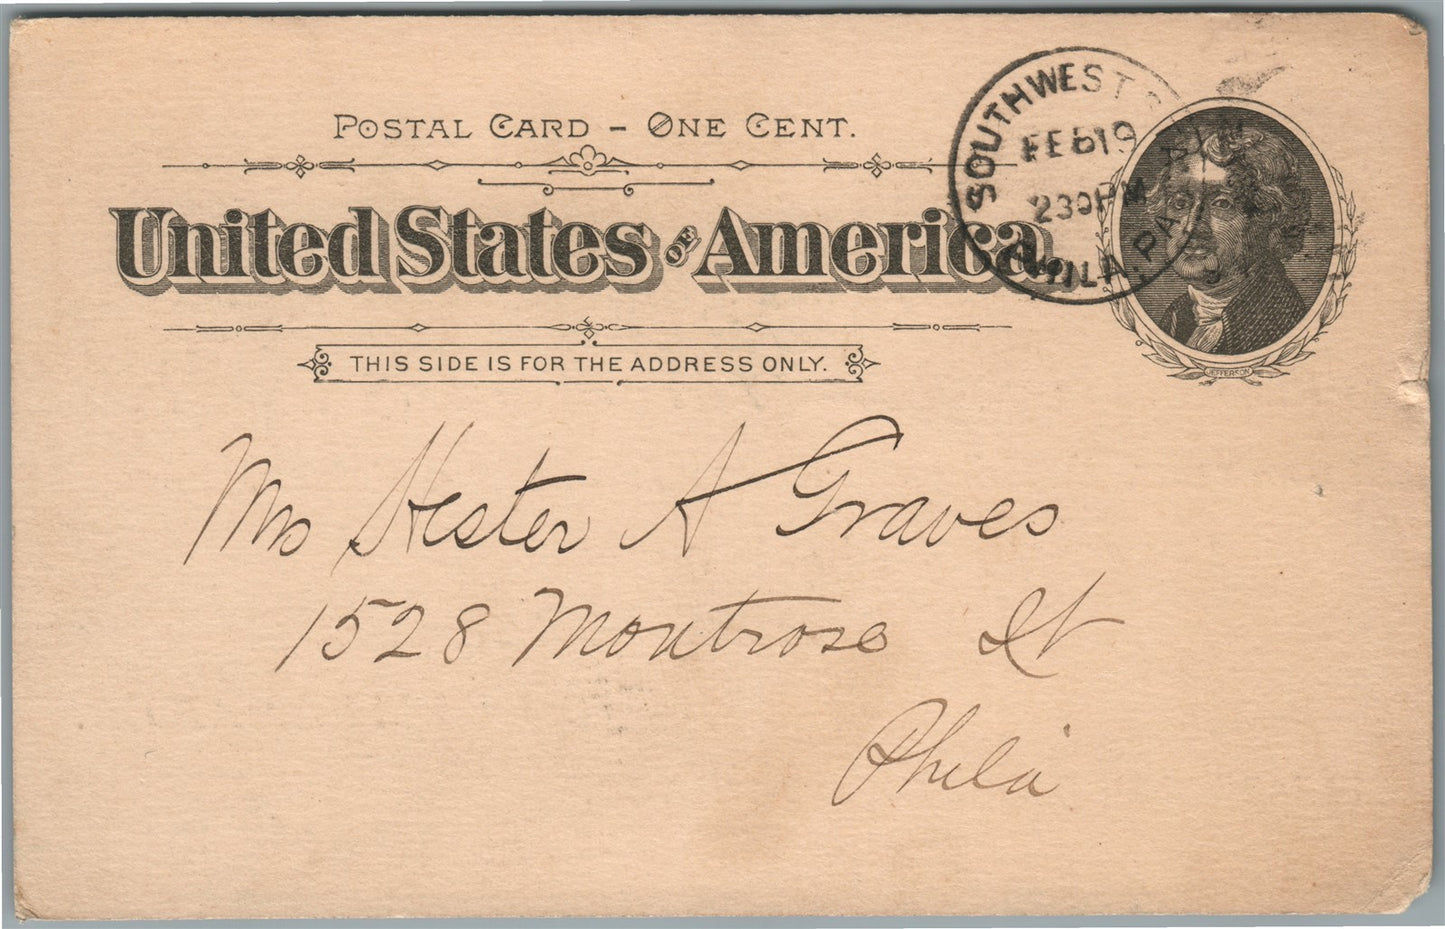 POSTAL CARD – ONE CENT.
United States OF America.
SOUTHWEST
FEB19
230PM
PHILA, PA
JEFFERSON
THIS SIDE IS FOR THE ADDRESS ONLY.
Mrs Hester A Graves
1528 Montrose St
Phila